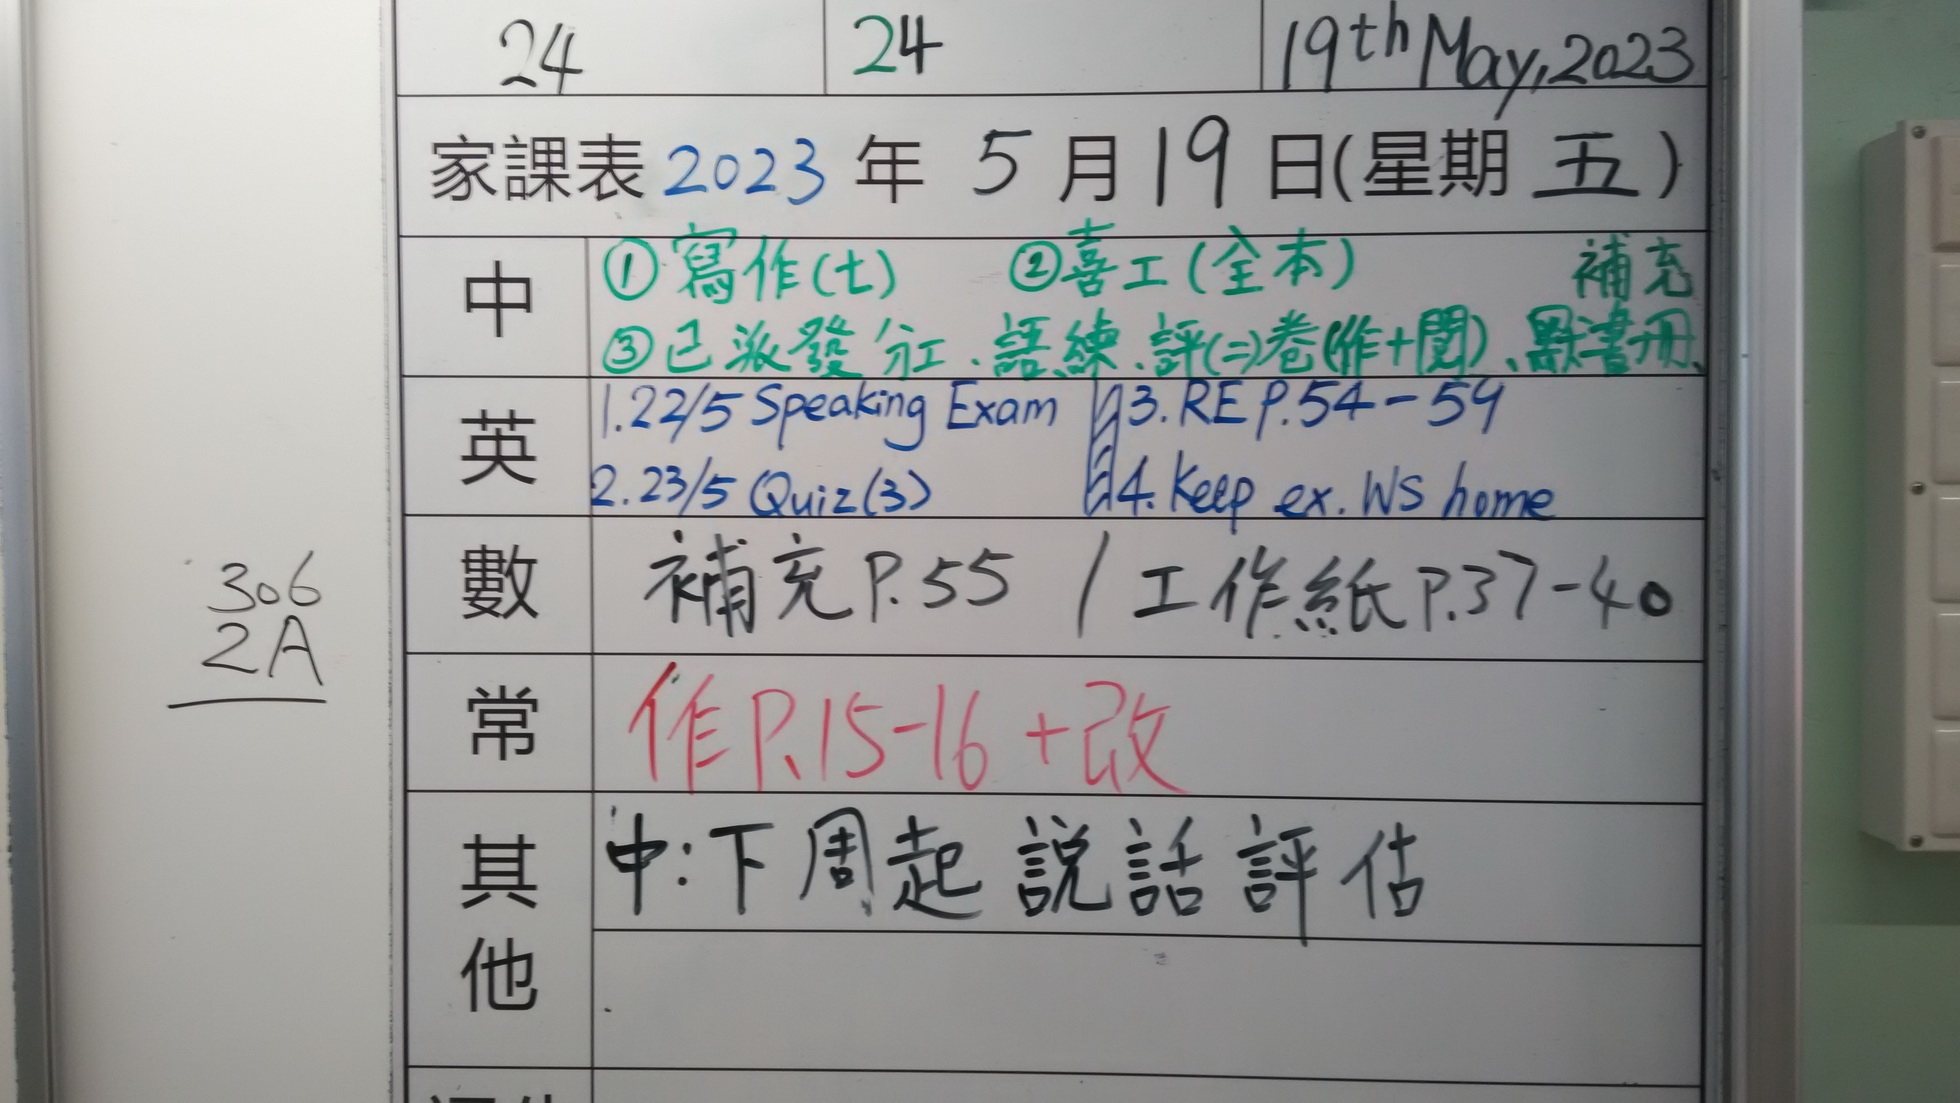 24 24 19th May, 2023
家課表 2023 年 5 月 19 日(星期 五)
中 ①寫作(七) ②喜工(全本) 補充
③已派發 分工、語練、評(二)卷(作+閱)、默書冊、
英 1. 22/5 Speaking Exam 3. RE P.54-59
2. 23/5 Quiz(3) 4. Keep ex. WS home
數 補充 P.55 / 工作紙 P.37-40
306
2A
常 作 P.15-16 + 改
其他 中:下周起 説話評估